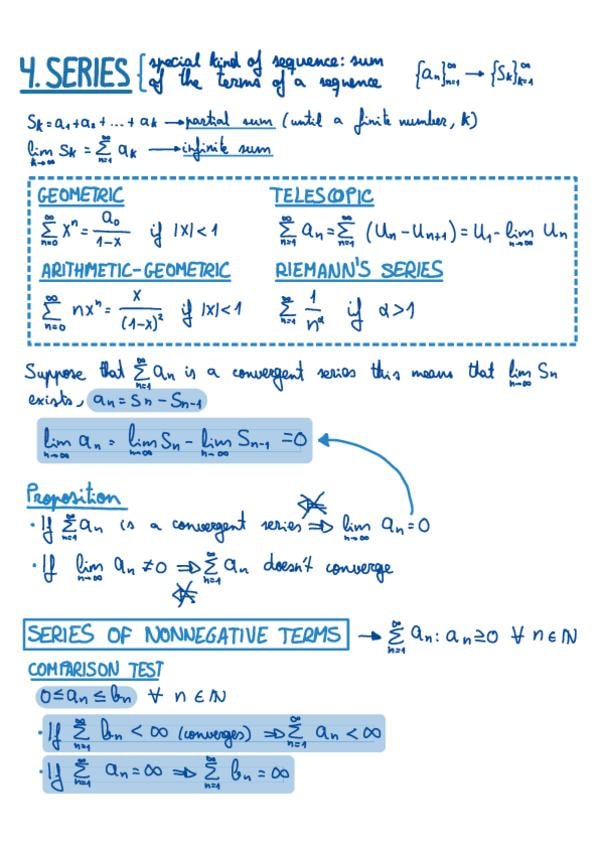 4. SERIES { special kind of sequence: sum of the terms of a sequence {aₙ}ₙ₌₁^∞ → {Sₖ}ₖ₌₁^∞
Sₖ = a₁ + a₂ + ... + aₖ → partial sum (until a finite number, k)
lim_{k→∞} Sₖ = ∑_{n=1}^∞ aₖ → infinite sum
GEOMETRIC
∑_{n=0}^∞ xⁿ = a₀/(1-x) if |x| < 1
TELESCOPIC
∑_{n=1}^∞ aₙ = ∑_{n=1}^∞ (Uₙ - Uₙ₊₁) = U₁ - lim_{n→∞} Uₙ
ARITHMETIC-GEOMETRIC
∑_{n=0}^∞ nxⁿ = x/(1-x)² if |x| < 1
RIEMANN'S SERIES
∑_{n=1}^∞ 1/n^α if α > 1
Suppose that ∑_{n=1}^∞ aₙ is a convergent series this means that lim_{n→∞} Sₙ
exists, aₙ = Sₙ - Sₙ₋₁
lim_{n→∞} aₙ = lim_{n→∞} Sₙ - lim_{n→∞} Sₙ₋₁ = 0
Proposition
· If ∑_{n=1}^∞ aₙ is a convergent series ⇒ lim_{n→∞} aₙ = 0
⇍
· If lim_{n→∞} aₙ ≠ 0 ⇒ ∑_{n=1}^∞ aₙ doesn't converge
⇍
SERIES OF NONNEGATIVE TERMS → ∑_{n=1}^∞ aₙ : aₙ ≥ 0 ∀ n ∈ ℕ
COMPARISON TEST
0 ≤ aₙ ≤ bₙ ∀ n ∈ ℕ
· If ∑_{n=1}^∞ bₙ < ∞ (converges) ⇒ ∑_{n=1}^∞ aₙ < ∞
· If ∑_{n=1}^∞ aₙ = ∞ ⇒ ∑_{n=1}^∞ bₙ = ∞